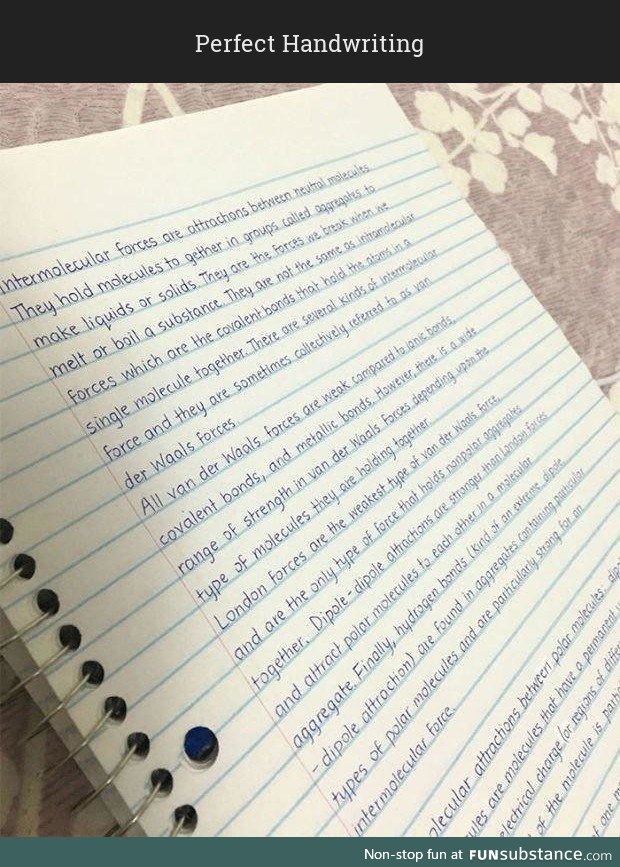 Perfect Handwriting
Intermolecular forces are attractions between neutral molecules
They hold molecules to gether in groups called aggregates to
make liquids or solids. They are the forces we break when we
melt or boil a substance. They are not the same as intramolecular
forces which are the covalent bonds that hold the atoms in a
single molecule together. There are several kinds of intermolecular
force and they are sometimes collectively referred to as van
der Waals forces.
All van der Waals forces are weak compared to ionic bonds,
covalent bonds, and metallic bonds. However, there is a wide
range of strength in van der Waals forces depending upon the
type of molecules they are holding together.
London forces are the weakest type of van der Waals force,
and are the only type of force that holds nonpolar aggregates
together. Dipole-dipole attractions are stronger than London forces
and attract polar molecules to each other in a molecular
aggregate. Finally, hydrogen bonds (kind of an extreme dipole
-dipole attraction) are found in aggregates containing particular
types of polar molecules and are particularly strong for an
intermolecular force.
olecular attractions between polar molecules, dip
ules are molecules that have a permanent
electrical charge (or regions of diffe
of the molecule is
of one m
Non-stop fun at FUNsubstance.com